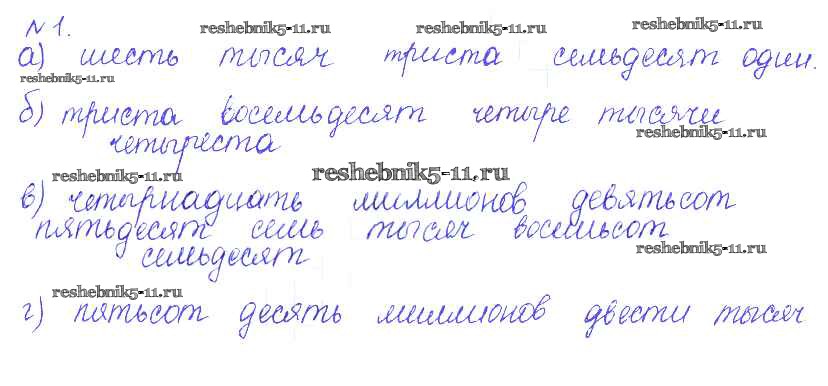 №1. reshebnik5-11.ru reshebnik5-11.ru reshebnik5-11.ru
а) шесть тысяч триста семьдесят один.
reshebnik5-11.ru
б) триста восемьдесят четыре тысячи
четыреста reshebnik5-11.ru
reshebnik5-11.ru reshebnik5-11.ru
в) четырнадцать миллионов девятьсот
пятьдесят семь тысяч восемьсот
семьдесят reshebnik5-11.ru
reshebnik5-11.ru
г) пятьсот десять миллионов двести тысяч